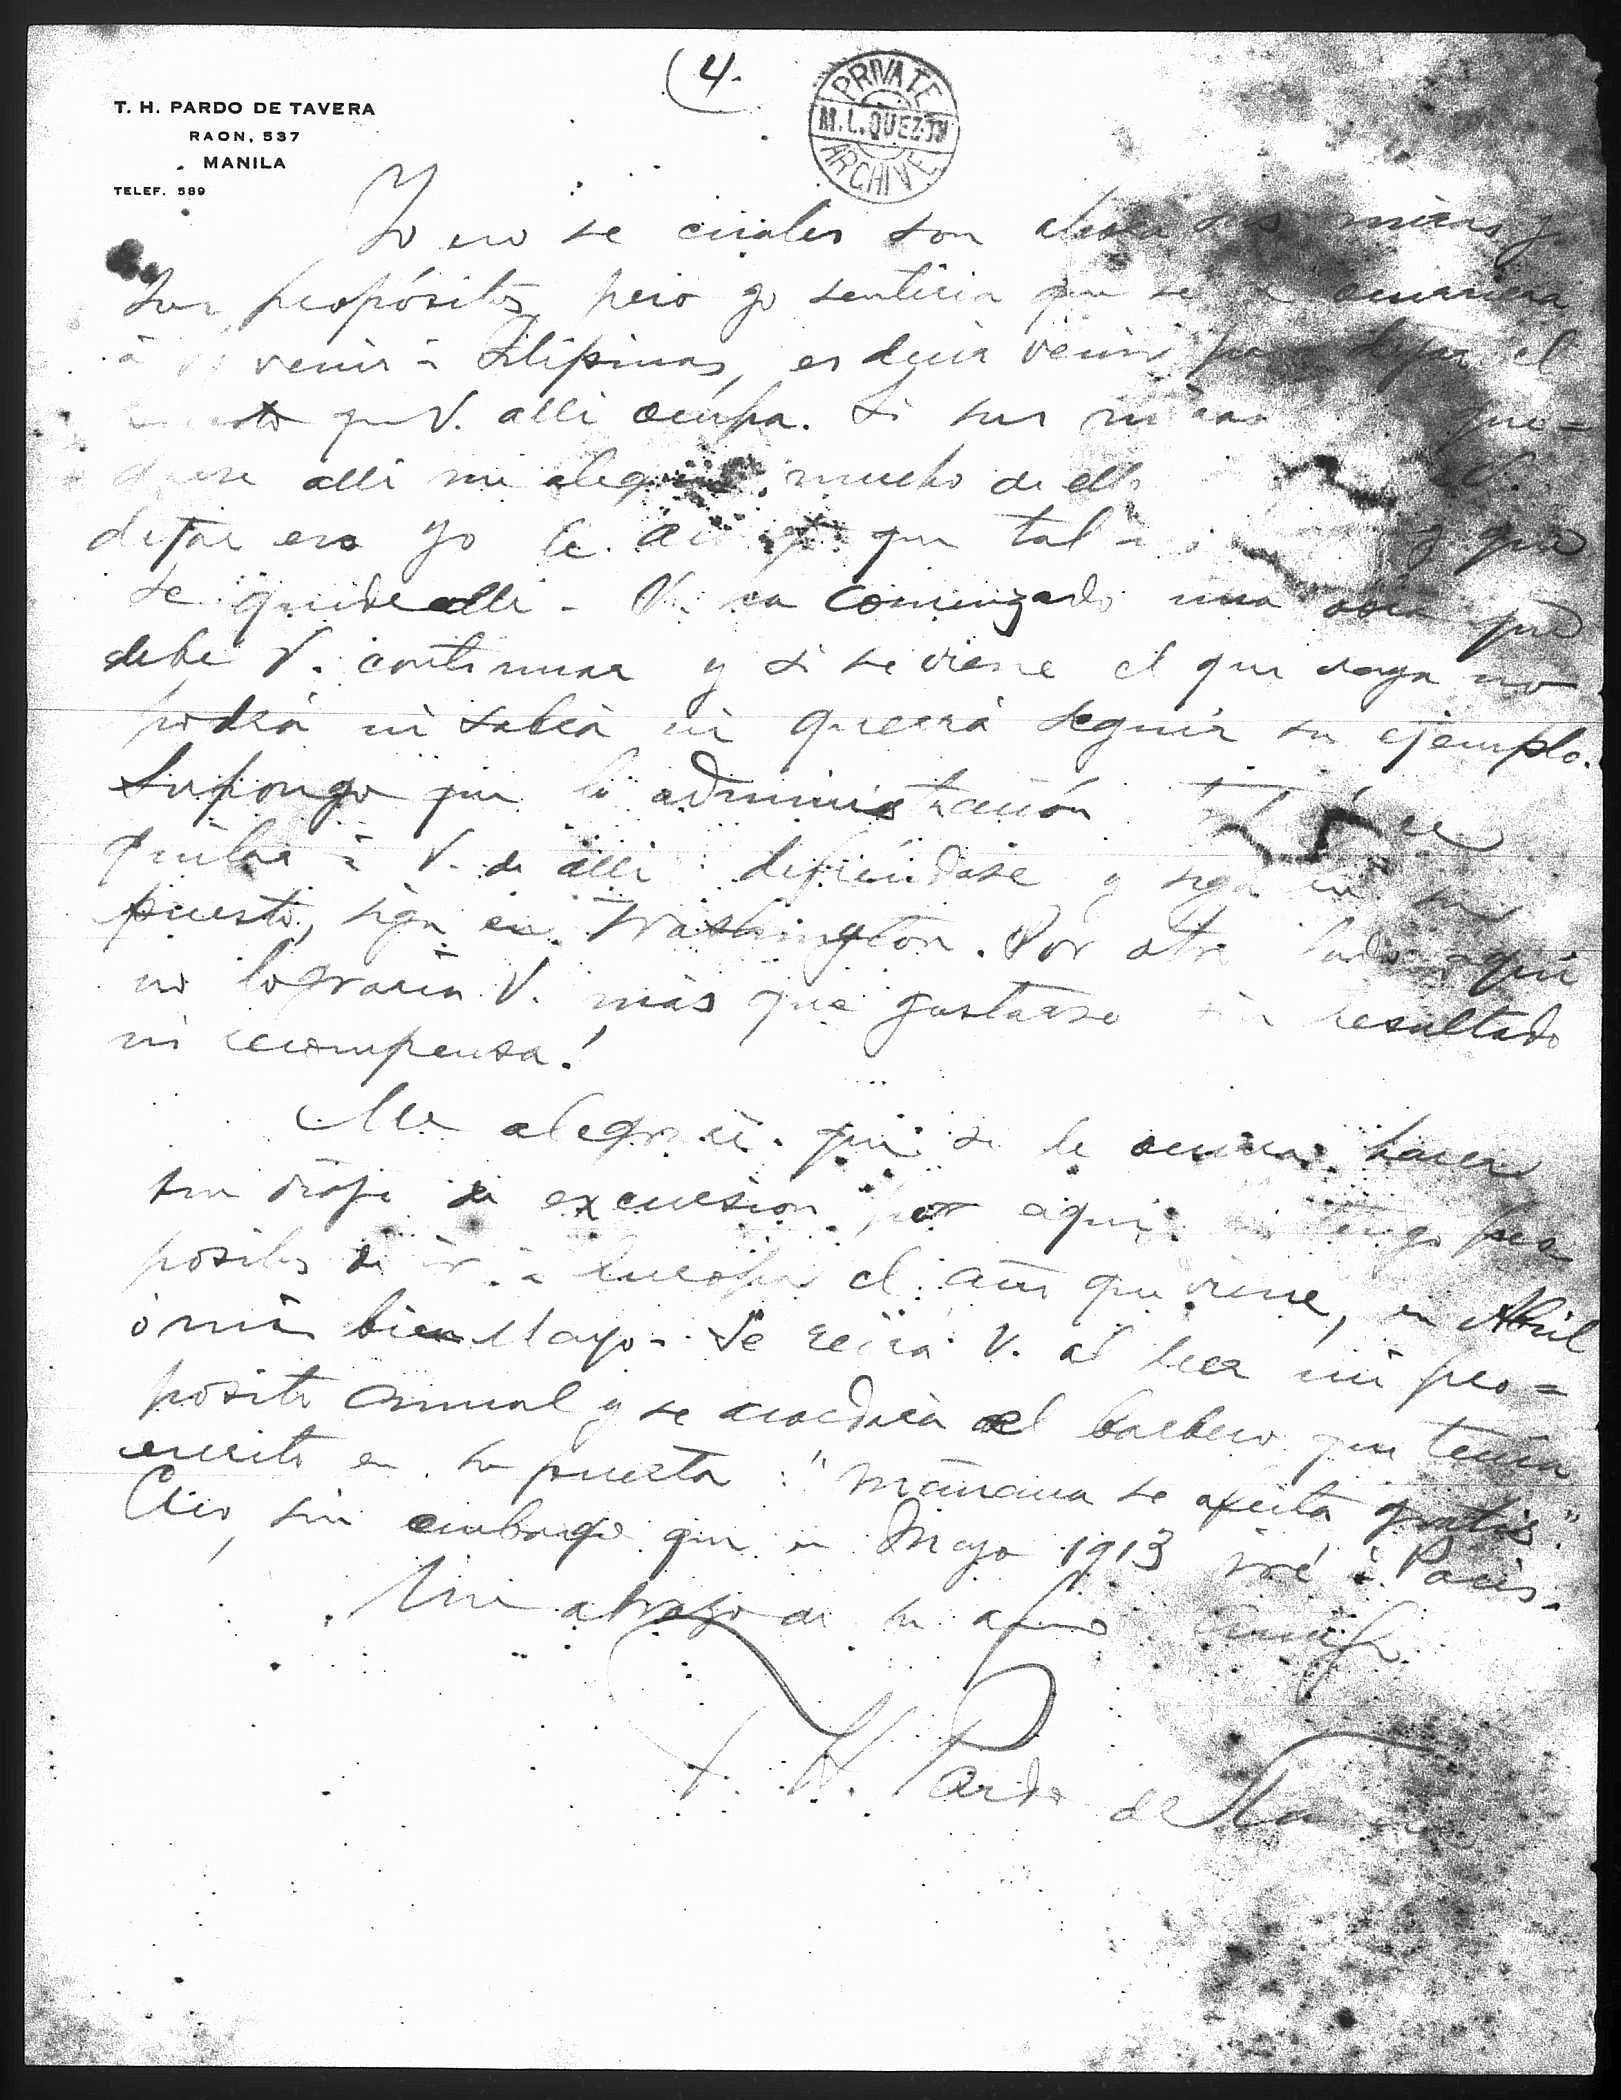 (4.
PRIVATE
M.L. QUEZON
ARCHIVE
T. H. PARDO DE TAVERA
RAON, 537
MANILA
TELEF. 589
Yo no se cuales son ahora sus miras y
sus propósitos pero yo sentiria que se le ocurriera
á V. venir á Filipinas, es decir venir para dejar el
puesto que V. alli ocupa. Si sus miras que=
darse alli me alegraré mucho de ello V.
dejar eso yo le que tal y que
se quede alli - V. ha comenzado una obra que
debe V. continuar y si se viene el que vaya no
podrá ni sabrá ni querrá seguir su ejemplo.
Supongo que la administración
quitar á V. de alli defiéndase y siga en su
puesto, siga en Washington. Por otro lado aqui
no lograria V. más que gastarse sin resultado
ni recompensa!
Me alegraré que se le ocurra hacer
un viaje de excursion por aqui tengo pro
posito de ir á Europa el año que viene, en Abril
ó más bien Mayo - Se reirá V. al leer mi pro=
posito annual y se acordará del barbero que tenia
escrito en su puerta: "mañana se afeita gratis".
Creo, sin embargo que en Mayo 1913 iré á Paris.
Un abrazo de su afmo amigo
T. H. Pardo de Tavera